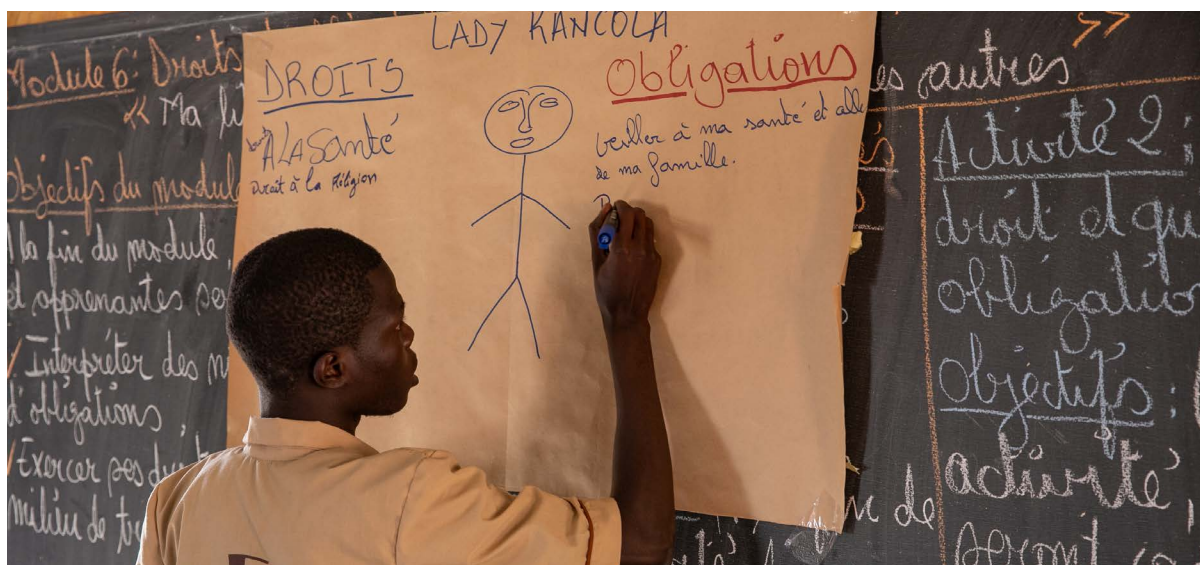 Module 6: Droits
« Ma
Objectifs du module
la fin du module
et apprenantes
Interpréter des
d'obligations
Exercer ses
milieu de
LADY KANCOLA
DROITS
A LA Santé
Droit à la Réligion
Obligations
veiller à ma santé et
de ma famille.
D
es autres »
Activité 2:
droit et
obligation
Objectifs:
activité
seront
de